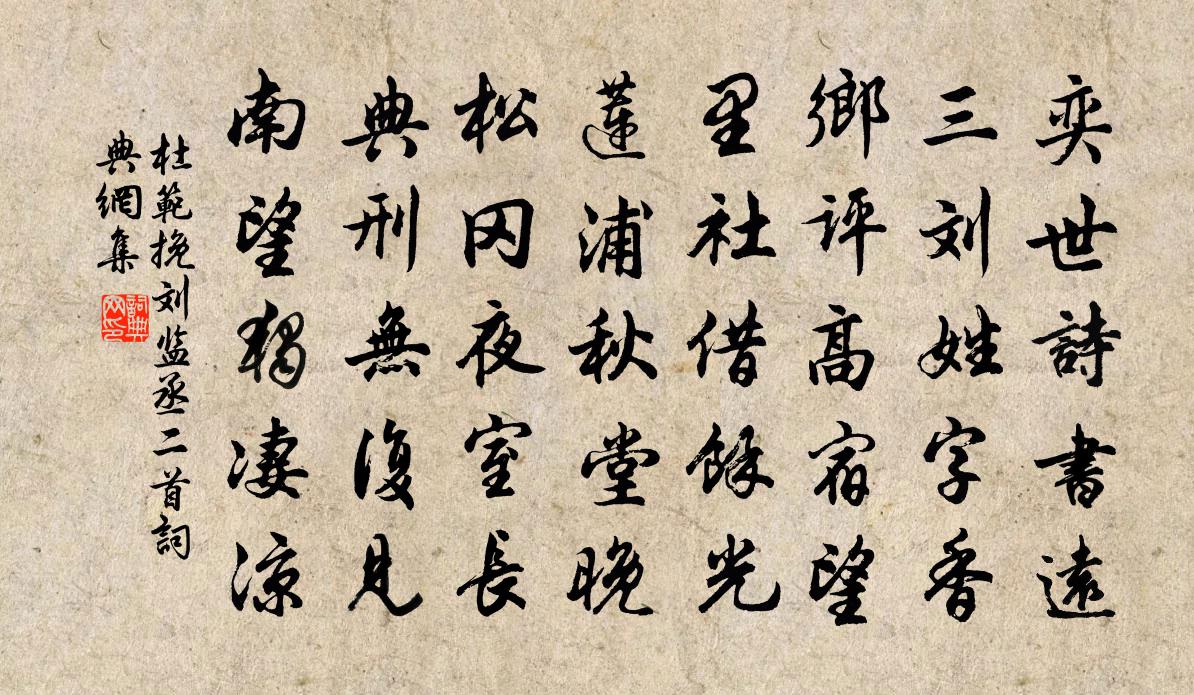 奕世詩書遠
三刘姓字香
鄉评高宿望
里社借餘光
蓮浦秋堂晚
松冈夜室長
典刑無復見
南望獨凄凉
杜範挽刘监丞二首詞
典網集
詞典
网印